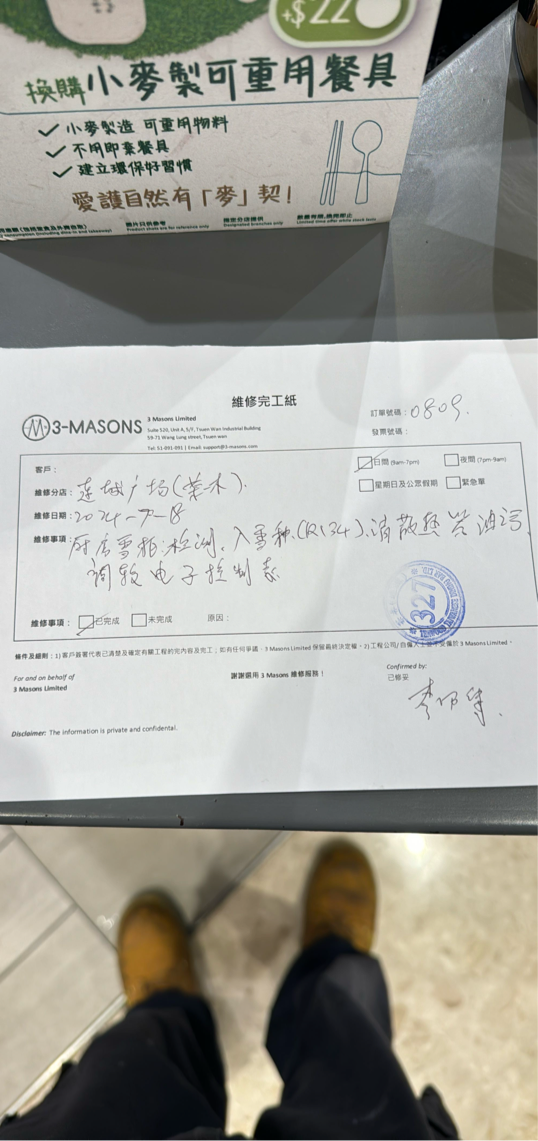 +$22
換購小麥製可重用餐具
小麥製造 可重用物料
不用即棄餐具
建立環保好習慣
愛護自然有「麥」契！
圖片只供參考
Product shots are for reference only
指定分店提供
Designated branches only
數量有限,換完即止
Limited time offer while stock lasts
維修完工紙
3-MASONS
3 Masons Limited
Suite 520, Unit A, 5/F, Tsuen Wan Industrial Building
59-71 Wang Lung street, Tsuen wan
Tel: 51-891-891 | Email: support@3-masons.com
訂單號碼：0809.
發票號碼：
客戶：
日間 (9am-7pm)
夜間 (7pm-9am)
星期日及公眾假期
緊急單
維修分店：
广场
維修日期：2024-7-8
維修事項：厨房雪柜检测、入雪种(R134)、清散热器油污,
调较电子控制表
327
維修事項：
已完成
未完成
原因：
條件及細則：1) 客戶簽署代表已清楚及確定有關工程的完內容及完工；如有任何爭議，3 Masons Limited 保留最終決定權。2)工程公司/
3 Masons Limited。
For and on behalf of
3 Masons Limited
謝謝選用 3 Masons 維修服務！
Confirmed by:
已修妥
Disclaimer: The information is private and confidential.